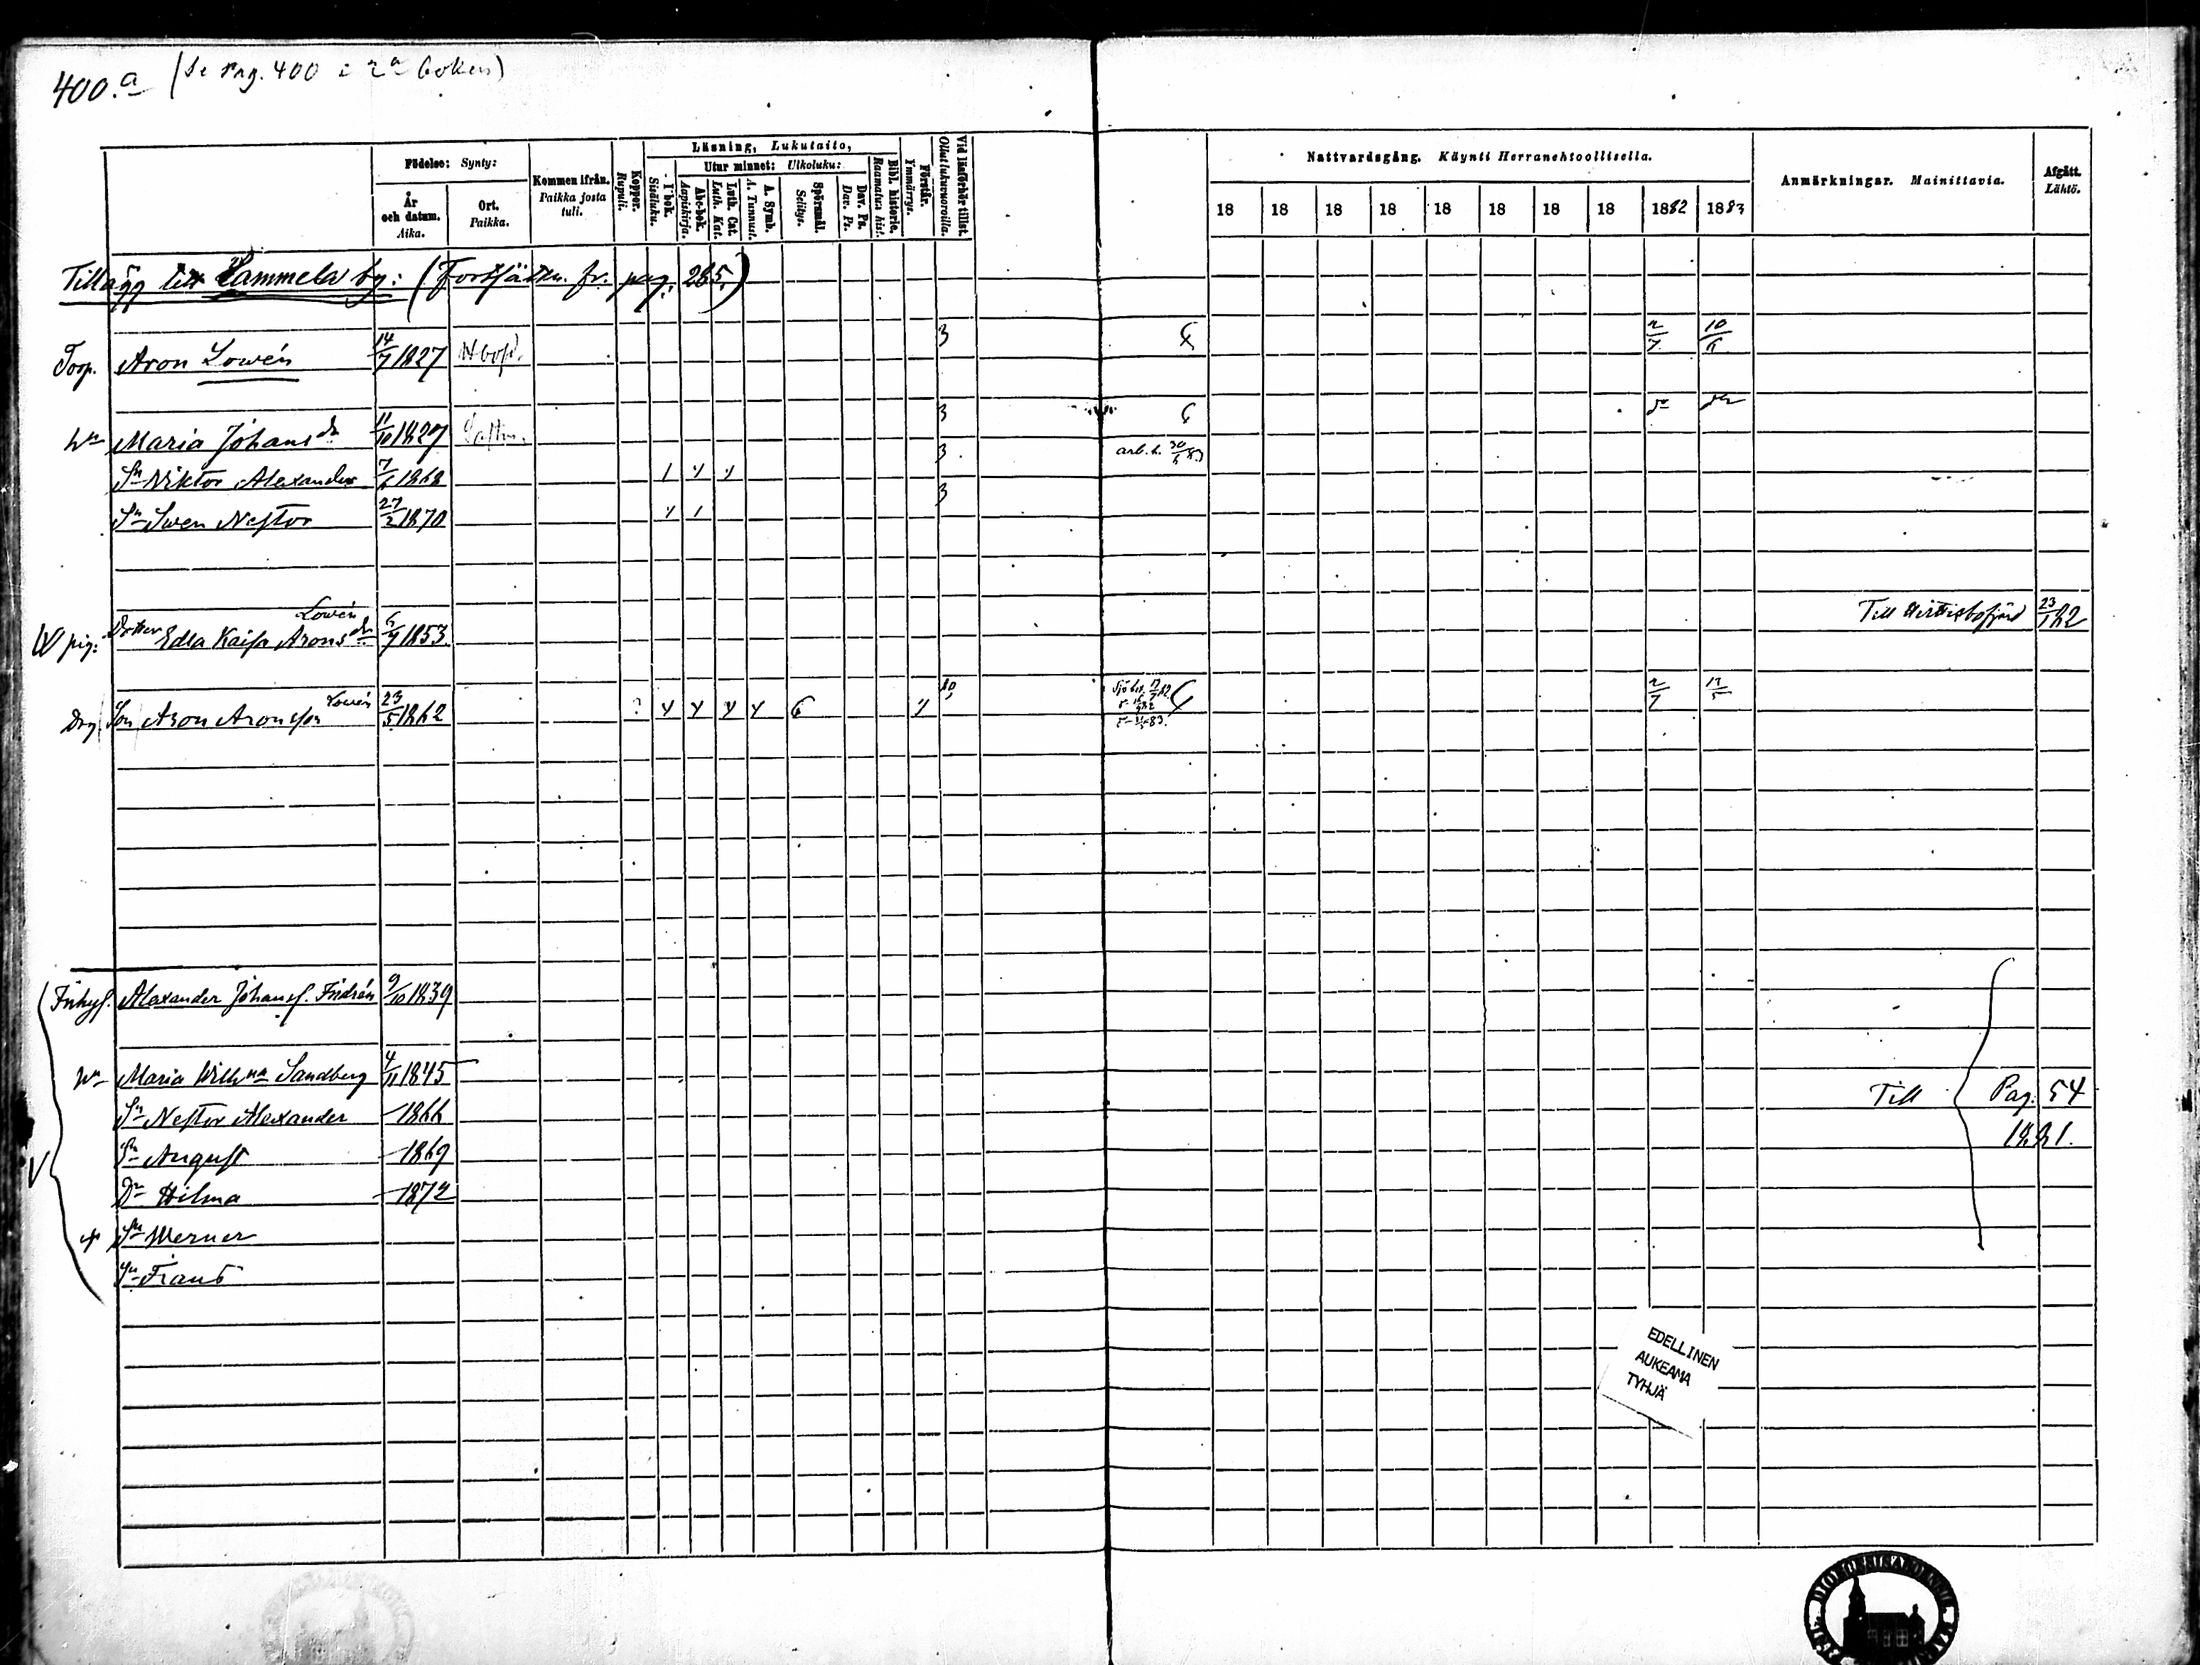 400.a (Se pag. 400 i 2a boken)
Födelse: Synty:
År och datum. Aika.
Ort. Paikka.
Kommen ifrån. Paikka josta tuli.
Koppor. Rupuli.
Läsning, Lukutaito,
I bok. Sisäluku.
Utur minnet: Ulkoluku:
Abc-bok. Aapiskirja.
Luth. Cat. Luth. Kat.
A. Symb. A. Tunnust.
Spörsmål. Selitys.
Dav. Ps. Dav. Ps.
Bibl. historie. Raamatun hist.
Förstår. Ymmärrys.
Vid läsförhör tillst. Ollut lukuvuoroilla.
Nattvardsgång. Käynti Herranehtoollisella.
18 18 18 18 18 18 18 18 1882 1883
Anmärkningar. Mainittavia.
Afgått. Lähtö.
Tillägg till Lammela by: (Fortsättn. fr. pag. 285.)
Torp. Aron Lowén 14/7 1827 3 2/7 10/6
Hu Maria Johansdr 11/10 1827 3
Sn Wiktor Alexander 7/6 1868 3 arb. b. 30/6 83
Sn Swen Nestor 27/2 1870 3
pig: Dotter Edla Kaisa Aronsdr Lowén 6/7 1853. Till Hittisbofjärd 23/1 82
Drg Son Aron Aronsson Lowén 23/5 1862 10 2/7 12/5
Inhys. Alexander Johanss. Fridrén 9/10 1839
Hu Maria Willhna Sandberg 4/11 1845
Sn Nestor Alexander 1866 Till Pag. 54
Sn August 1869 1881.
Dr Hilma 1872
Sn Werner
Sn Frans
EDELLINEN
AUKEAMA
TYHJÄ